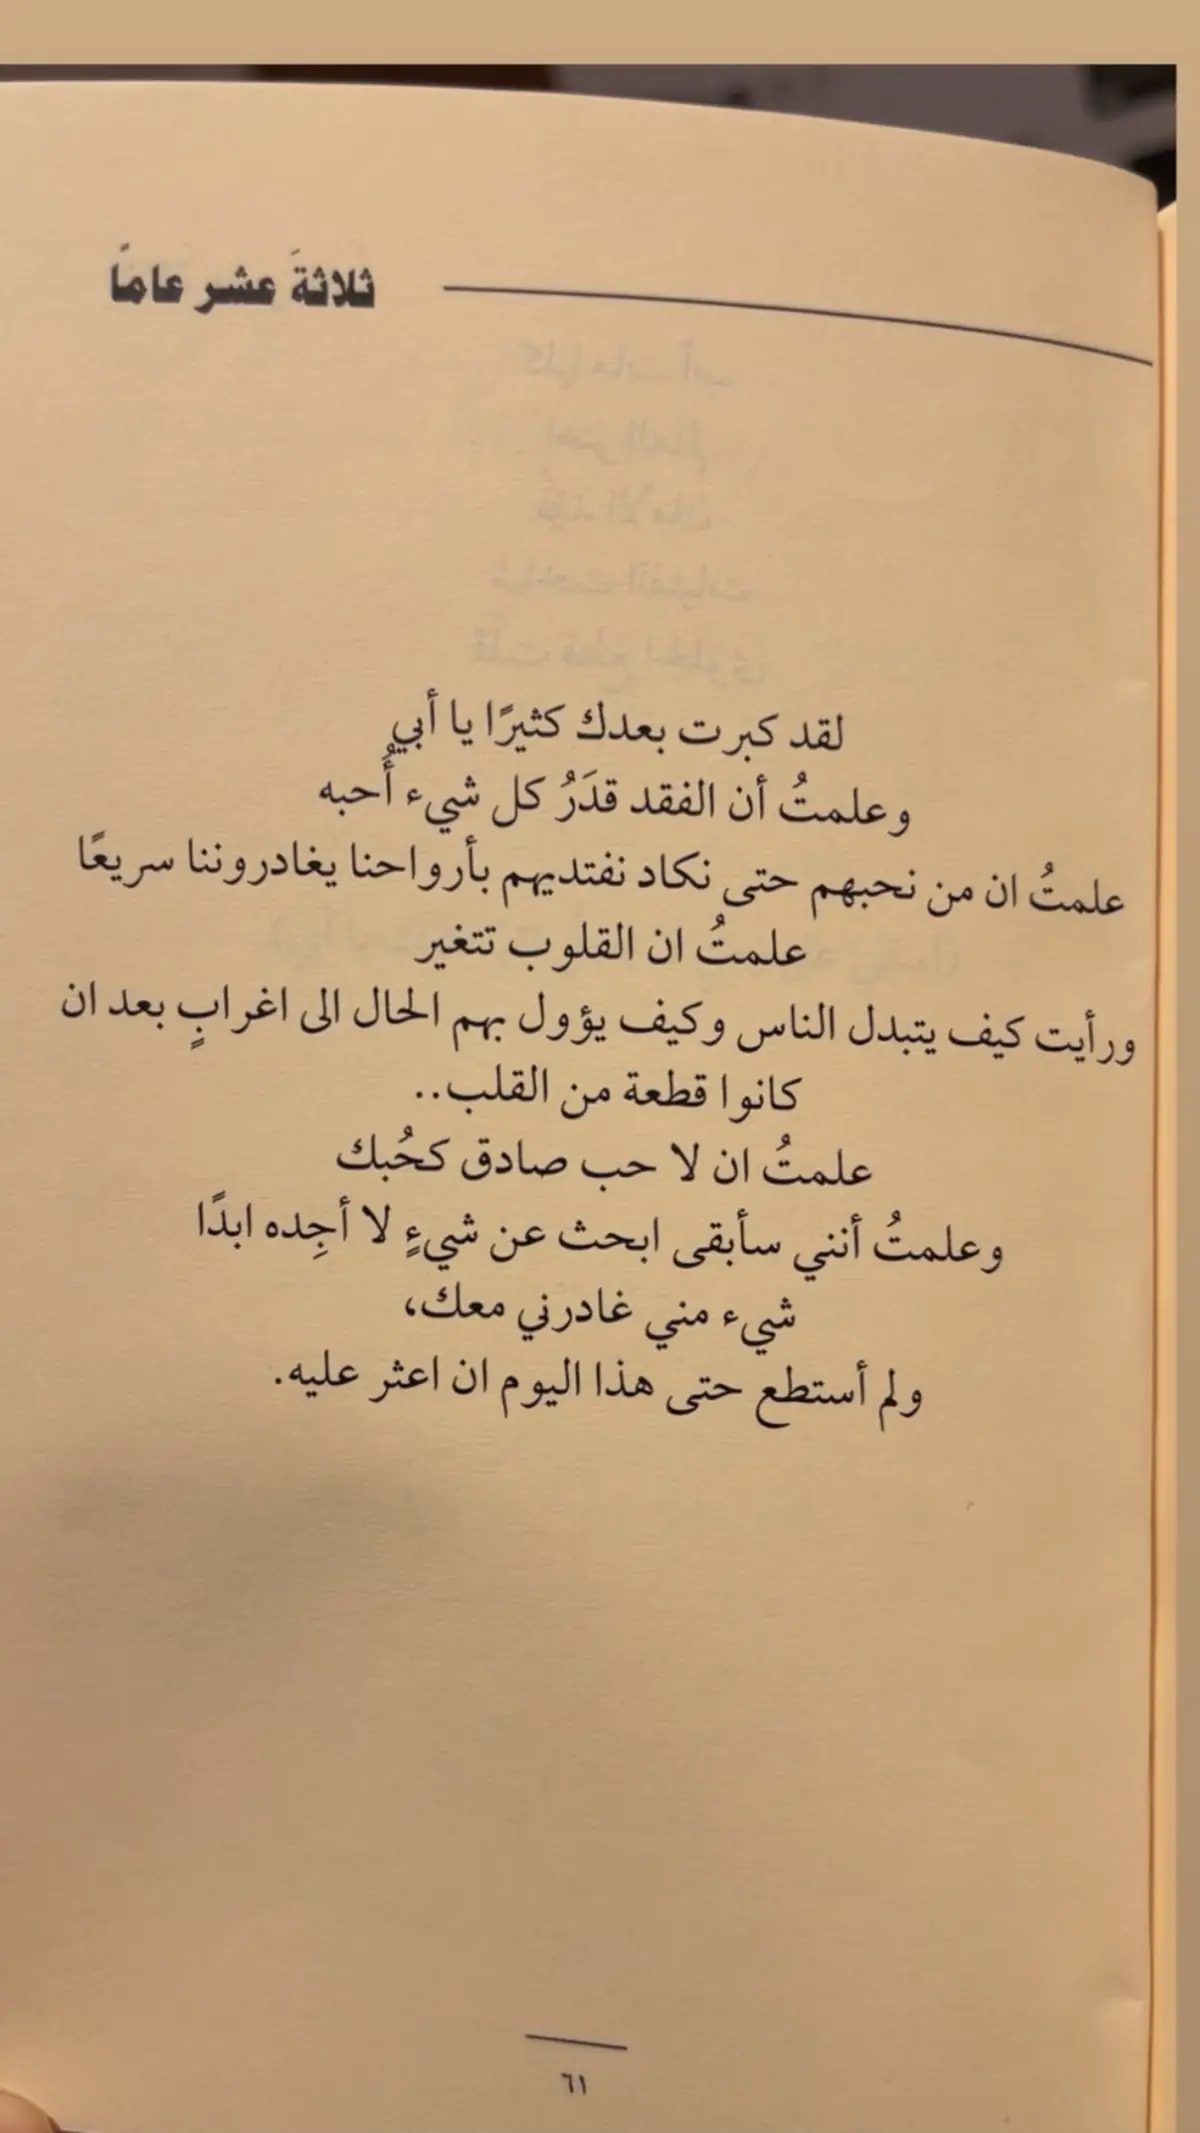 ثلاثةَ عشر عامًا
لقد كبرت بعدك كثيرًا يا أبي
وعلمتُ أن الفقد قدَرُ كل شيء أُحبه
علمتُ ان من نحبهم حتى نكاد نفتديهم بأرواحنا يغادروننا سريعًا
علمتُ ان القلوب تتغير
ورأيت كيف يتبدل الناس وكيف يؤول بهم الحال الى اغرابٍ بعد ان
كانوا قطعة من القلب..
علمتُ ان لا حب صادق كحُبك
وعلمتُ أنني سأبقى ابحث عن شيءٍ لا أجِده ابدًا
شيء مني غادرني معك،
ولم أستطع حتى هذا اليوم ان اعثر عليه.
٦١